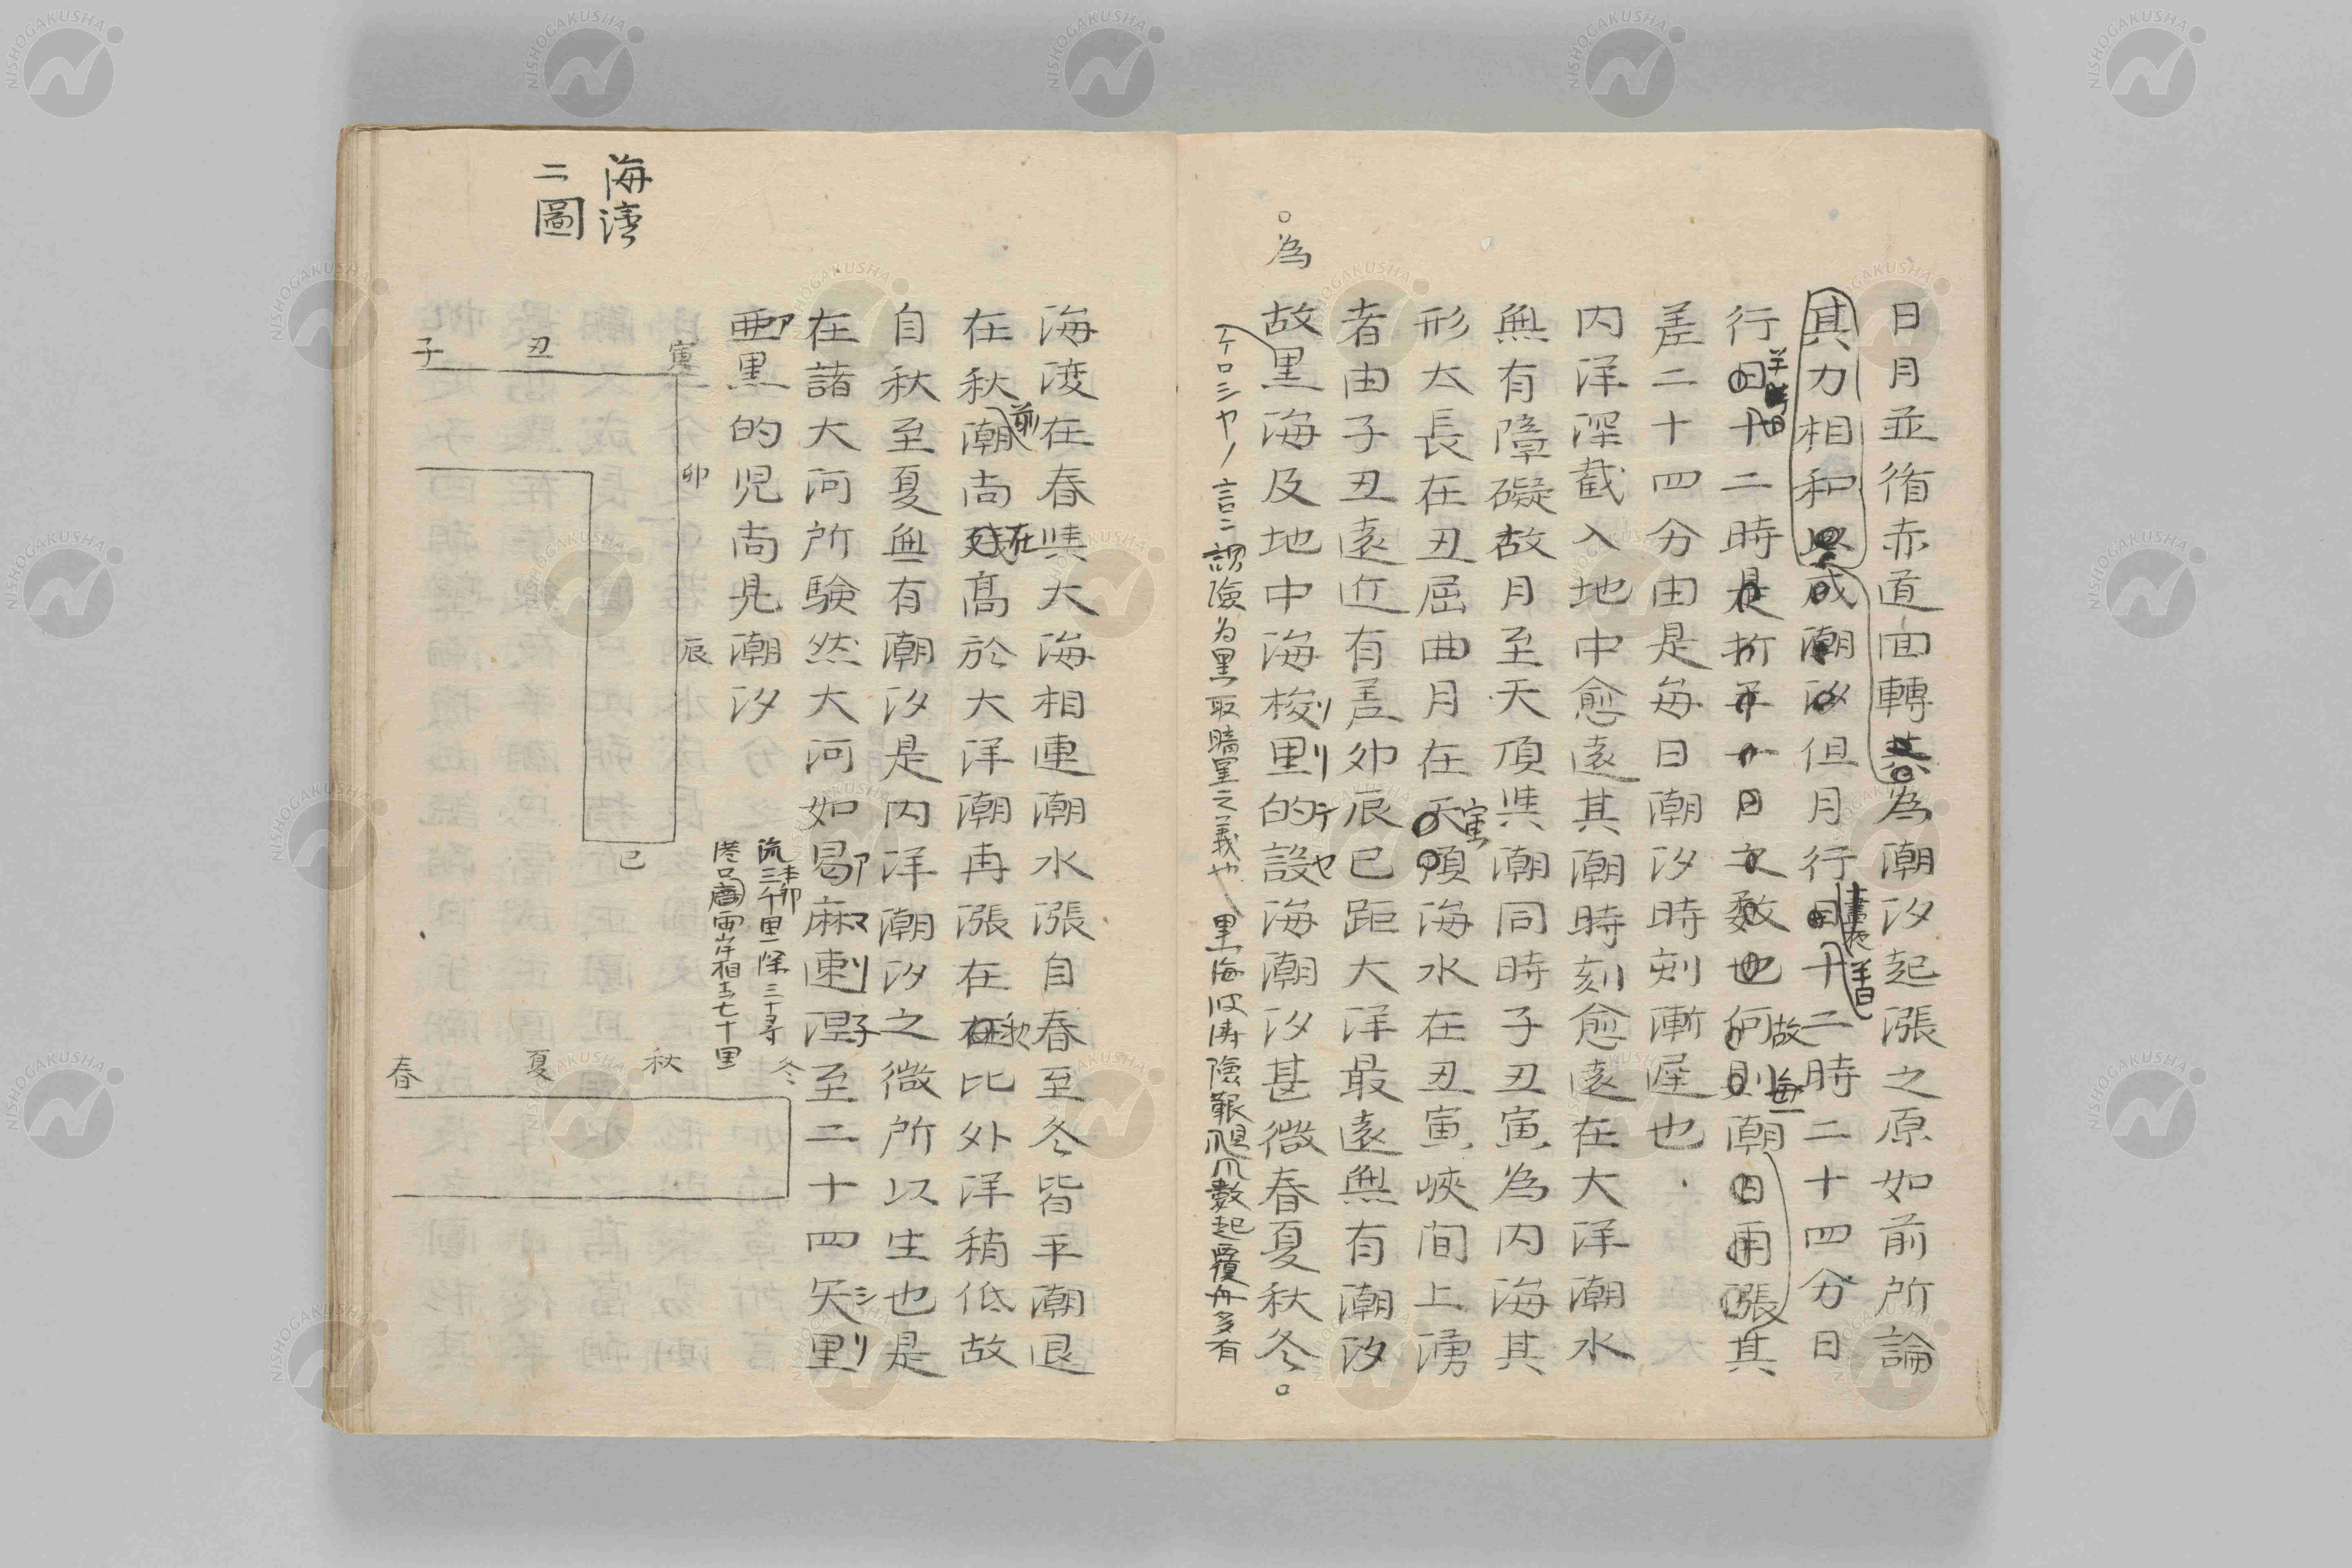 日月並循赤道面轉為潮汐起漲之原如前所論
其力相和與成潮汐但月行日十二時二十四分日
晝夜
半日
行日十二時是折半一日之数也何則潮日兩漲其
半日
故
海
差二十四分由是每日潮汐時刻漸遅也
内洋深截入地中愈遠其潮時刻愈遠在大洋潮水
無有障礙故月至天頂與潮同時子丑寅為内海其
形大長在丑屈曲月在天頂海水在丑寅峽間上湧
寅
者由子丑遠近有差卯辰巳距大洋最遠無有潮汐
故黒海及地中海梭里的設海潮汐甚微春夏秋冬。
。為
黒取晴星之義也
黒海波濤険艱颶風数起覆舟多有
海湾在春與大海相連潮水漲自春至冬皆平潮退
在秋潮尚在高於大洋潮再漲在秋比外洋稍低故
前
自秋至夏無有潮汐是内洋潮汐之微所以生也是
在諸大河所験然大河如曷麻速涅至二十四矢里
亜黒的児尚見潮汐
流三千里深三十尋
港口両岸相去七十里
海湾
二圖
寅
丑
子
卯
辰
巳
冬
秋
夏
春
NISHOGAKUSHA